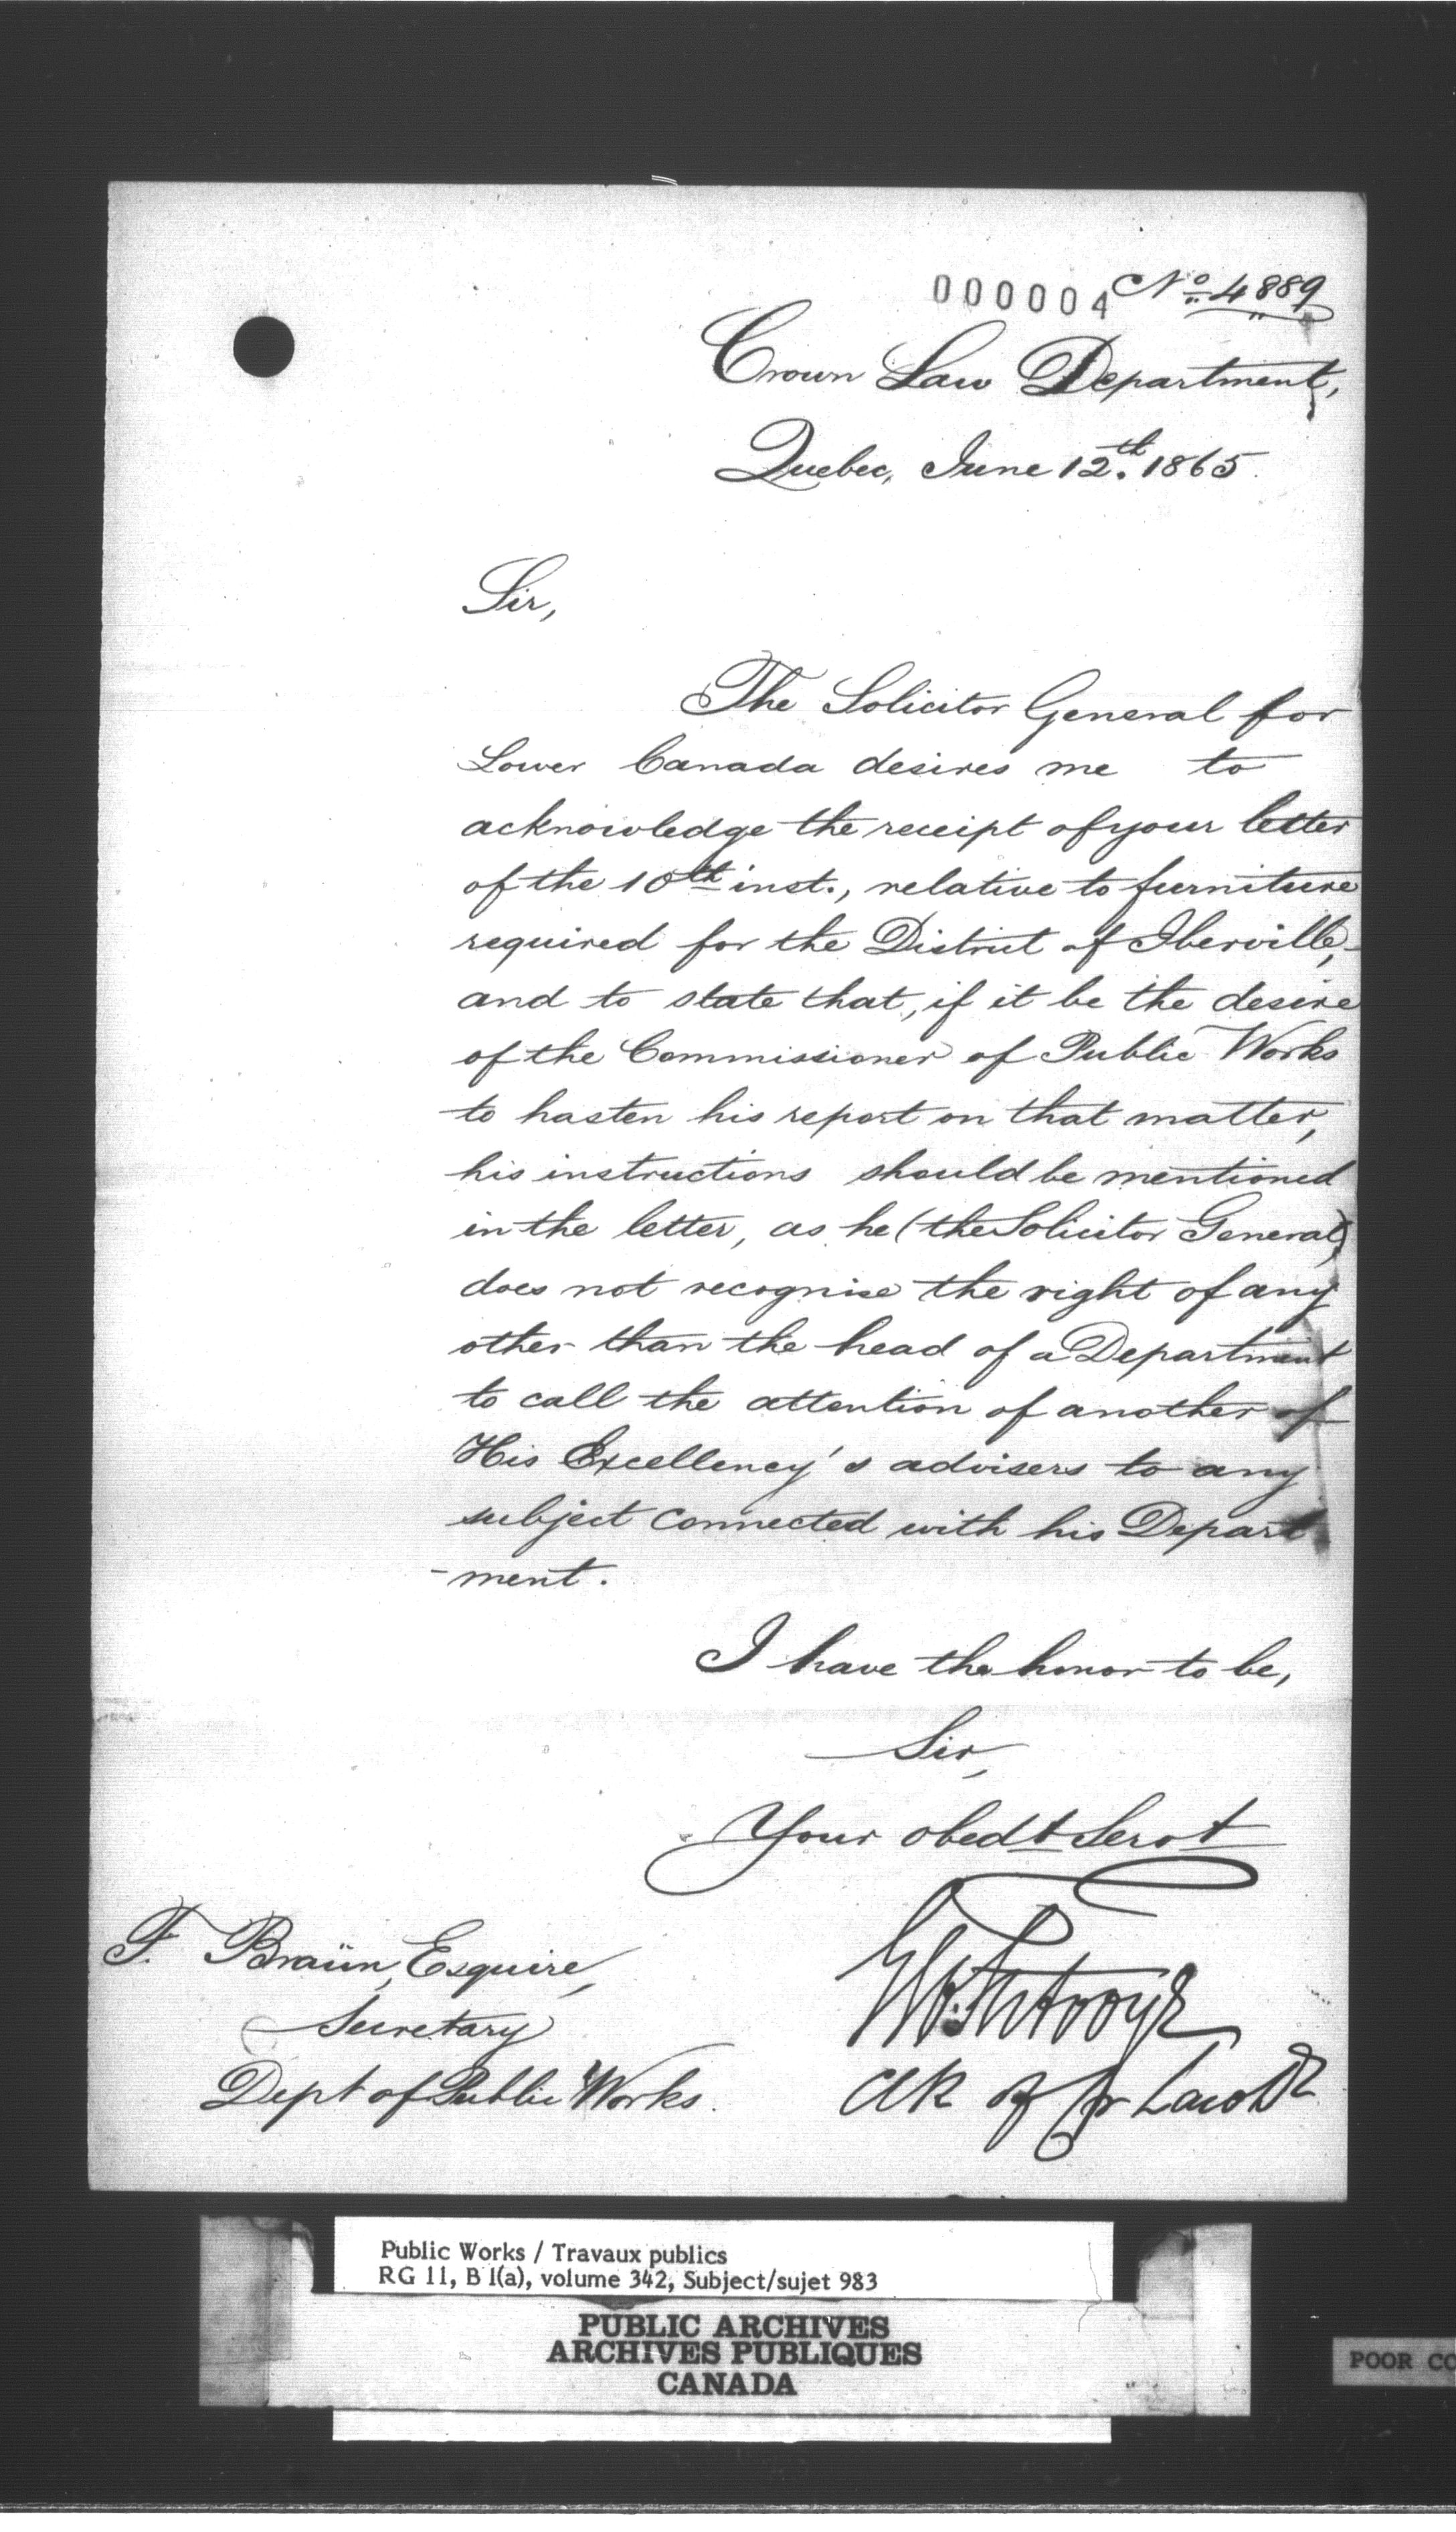 000004 No. 4889
Crown Law Department,
Quebec, June 12th. 1865.
Sir,
The Solicitor General for
Lower Canada desires me to
acknowledge the receipt of your letter
of the 10th inst., relative to furniture
required for the District of Iberville,
and to state that, if it be the desire
of the Commissioner of Public Works
to hasten his report on that matter,
his instructions should be mentioned
in the letter, as he (the Solicitor General)
does not recognise the right of any
other than the head of a Department
to call the attention of another of
His Excellency's advisers to any
subject connected with his Depart
-ment.
I have the honor to be,
Sir,
Your obedt Servt
F. Braün, Esquire,
Secretary
Dept of Public Works.
Clk of Cr Law
Public Works / Travaux publics
RG 11, B 1(a), volume 342, Subject/sujet 983
PUBLIC ARCHIVES
ARCHIVES PUBLIQUES
CANADA
POOR CO